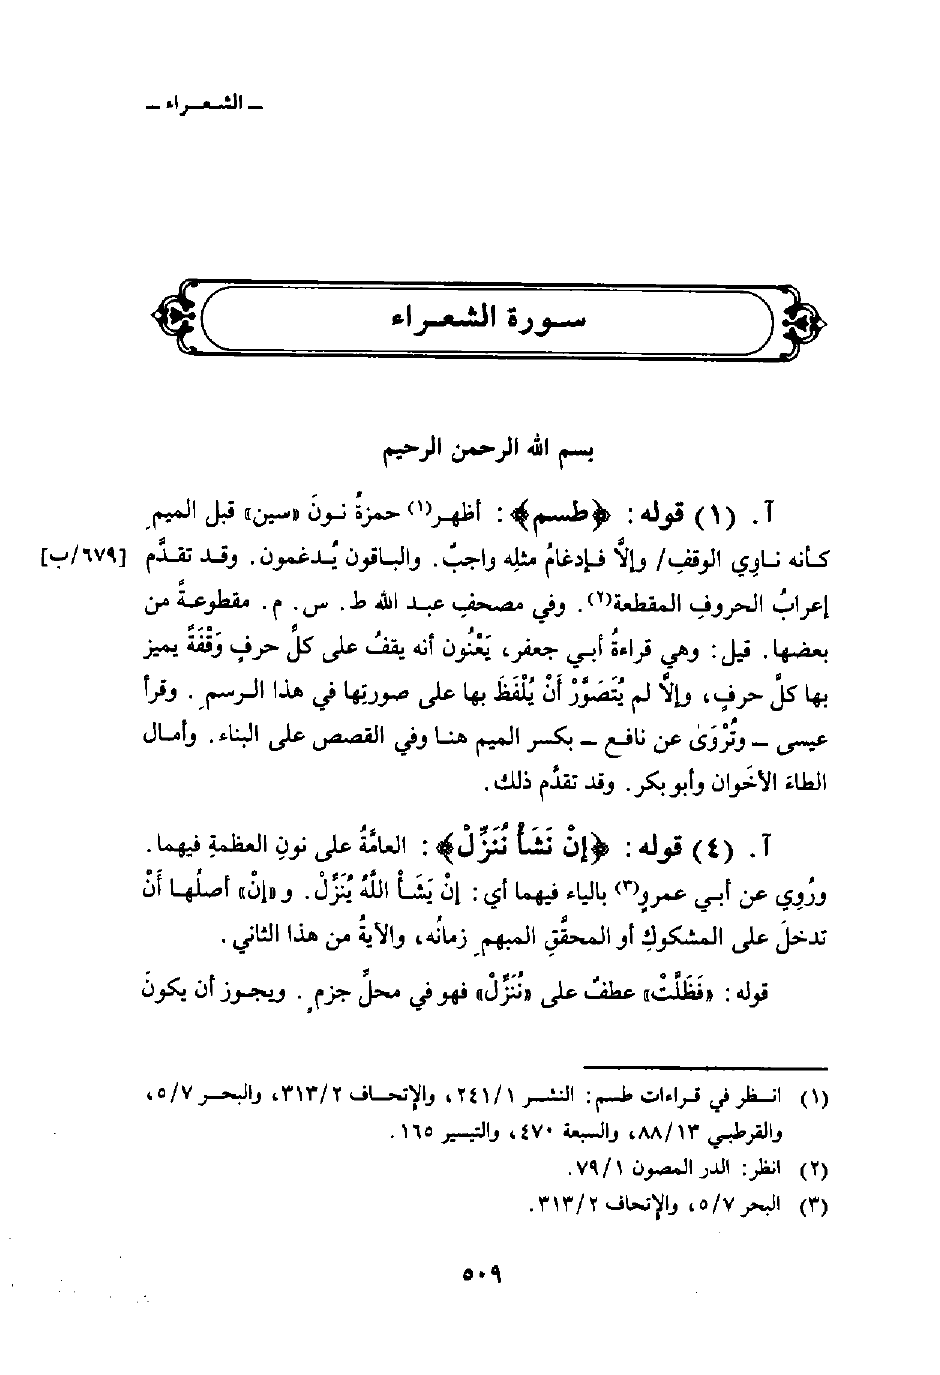 ــ الشعراء ــ
سورة الشعراء
بسم الله الرحمن الرحيم
آ. (١) قوله: ﴿طسم﴾: أظهر(١) حمزةُ نونَ «سين» قبل الميمِ
كأنه ناوِي الوقفِ/ وإلَّا فإدغامُ مثلِه واجبٌ. والباقون يُدغمون. وقد تقدَّم [٦٧٩/ب]
إعرابُ الحروفِ المقطعة(٢). وفي مصحفِ عبد الله ط. س. م. مقطوعةً من
بعضها. قيل: وهي قراءةُ أبي جعفر، يَعْنُون أنه يقفُ على كلِّ حرفٍ وَقْفَةً يميز
بها كلَّ حرفٍ، وإلَّا لم يُتَصَوَّرْ أَنْ يُلْفَظَ بها على صورتِها في هذا الرسمِ. وقرأ
عيسى ــ وتُرْوَىٰ عن نافع ــ بكسر الميم هنا وفي القصص على البناء. وأمال
الطاءَ الأخَوان وأبو بكر. وقد تقدَّم ذلك.
آ. (٤) قوله: ﴿إِنْ نَشَأْ نُنَزِّلْ﴾: العامَّةُ على نونِ العظمةِ فيهما.
ورُوِي عن أبي عمروٍ(٣) بالياء فيهما أي: إنْ يَشَأْ اللَّهُ يُنَزِّلْ. و«إنْ» أصلُها أَنْ
تدخلَ على المشكوكِ أو المحقَّقِ المبهمِ زمانُه، والآيةُ من هذا الثاني.
قوله: «فَظَلَّتْ» عطفٌ على «نُنَزِّلْ» فهو في محلِّ جزمٍ. ويجوز أن يكونَ
(١) انظر في قراءات طسم: النشر ٢٤١/١، والإتحاف ٣١٣/٢، والبحر ٥/٧،
والقرطبي ٨٨/١٣، والسبعة ٤٧٠، والتيسير ١٦٥.
(٢) انظر: الدر المصون ٧٩/١.
(٣) البحر ٥/٧، والإتحاف ٣١٣/٢.
٥٠٩